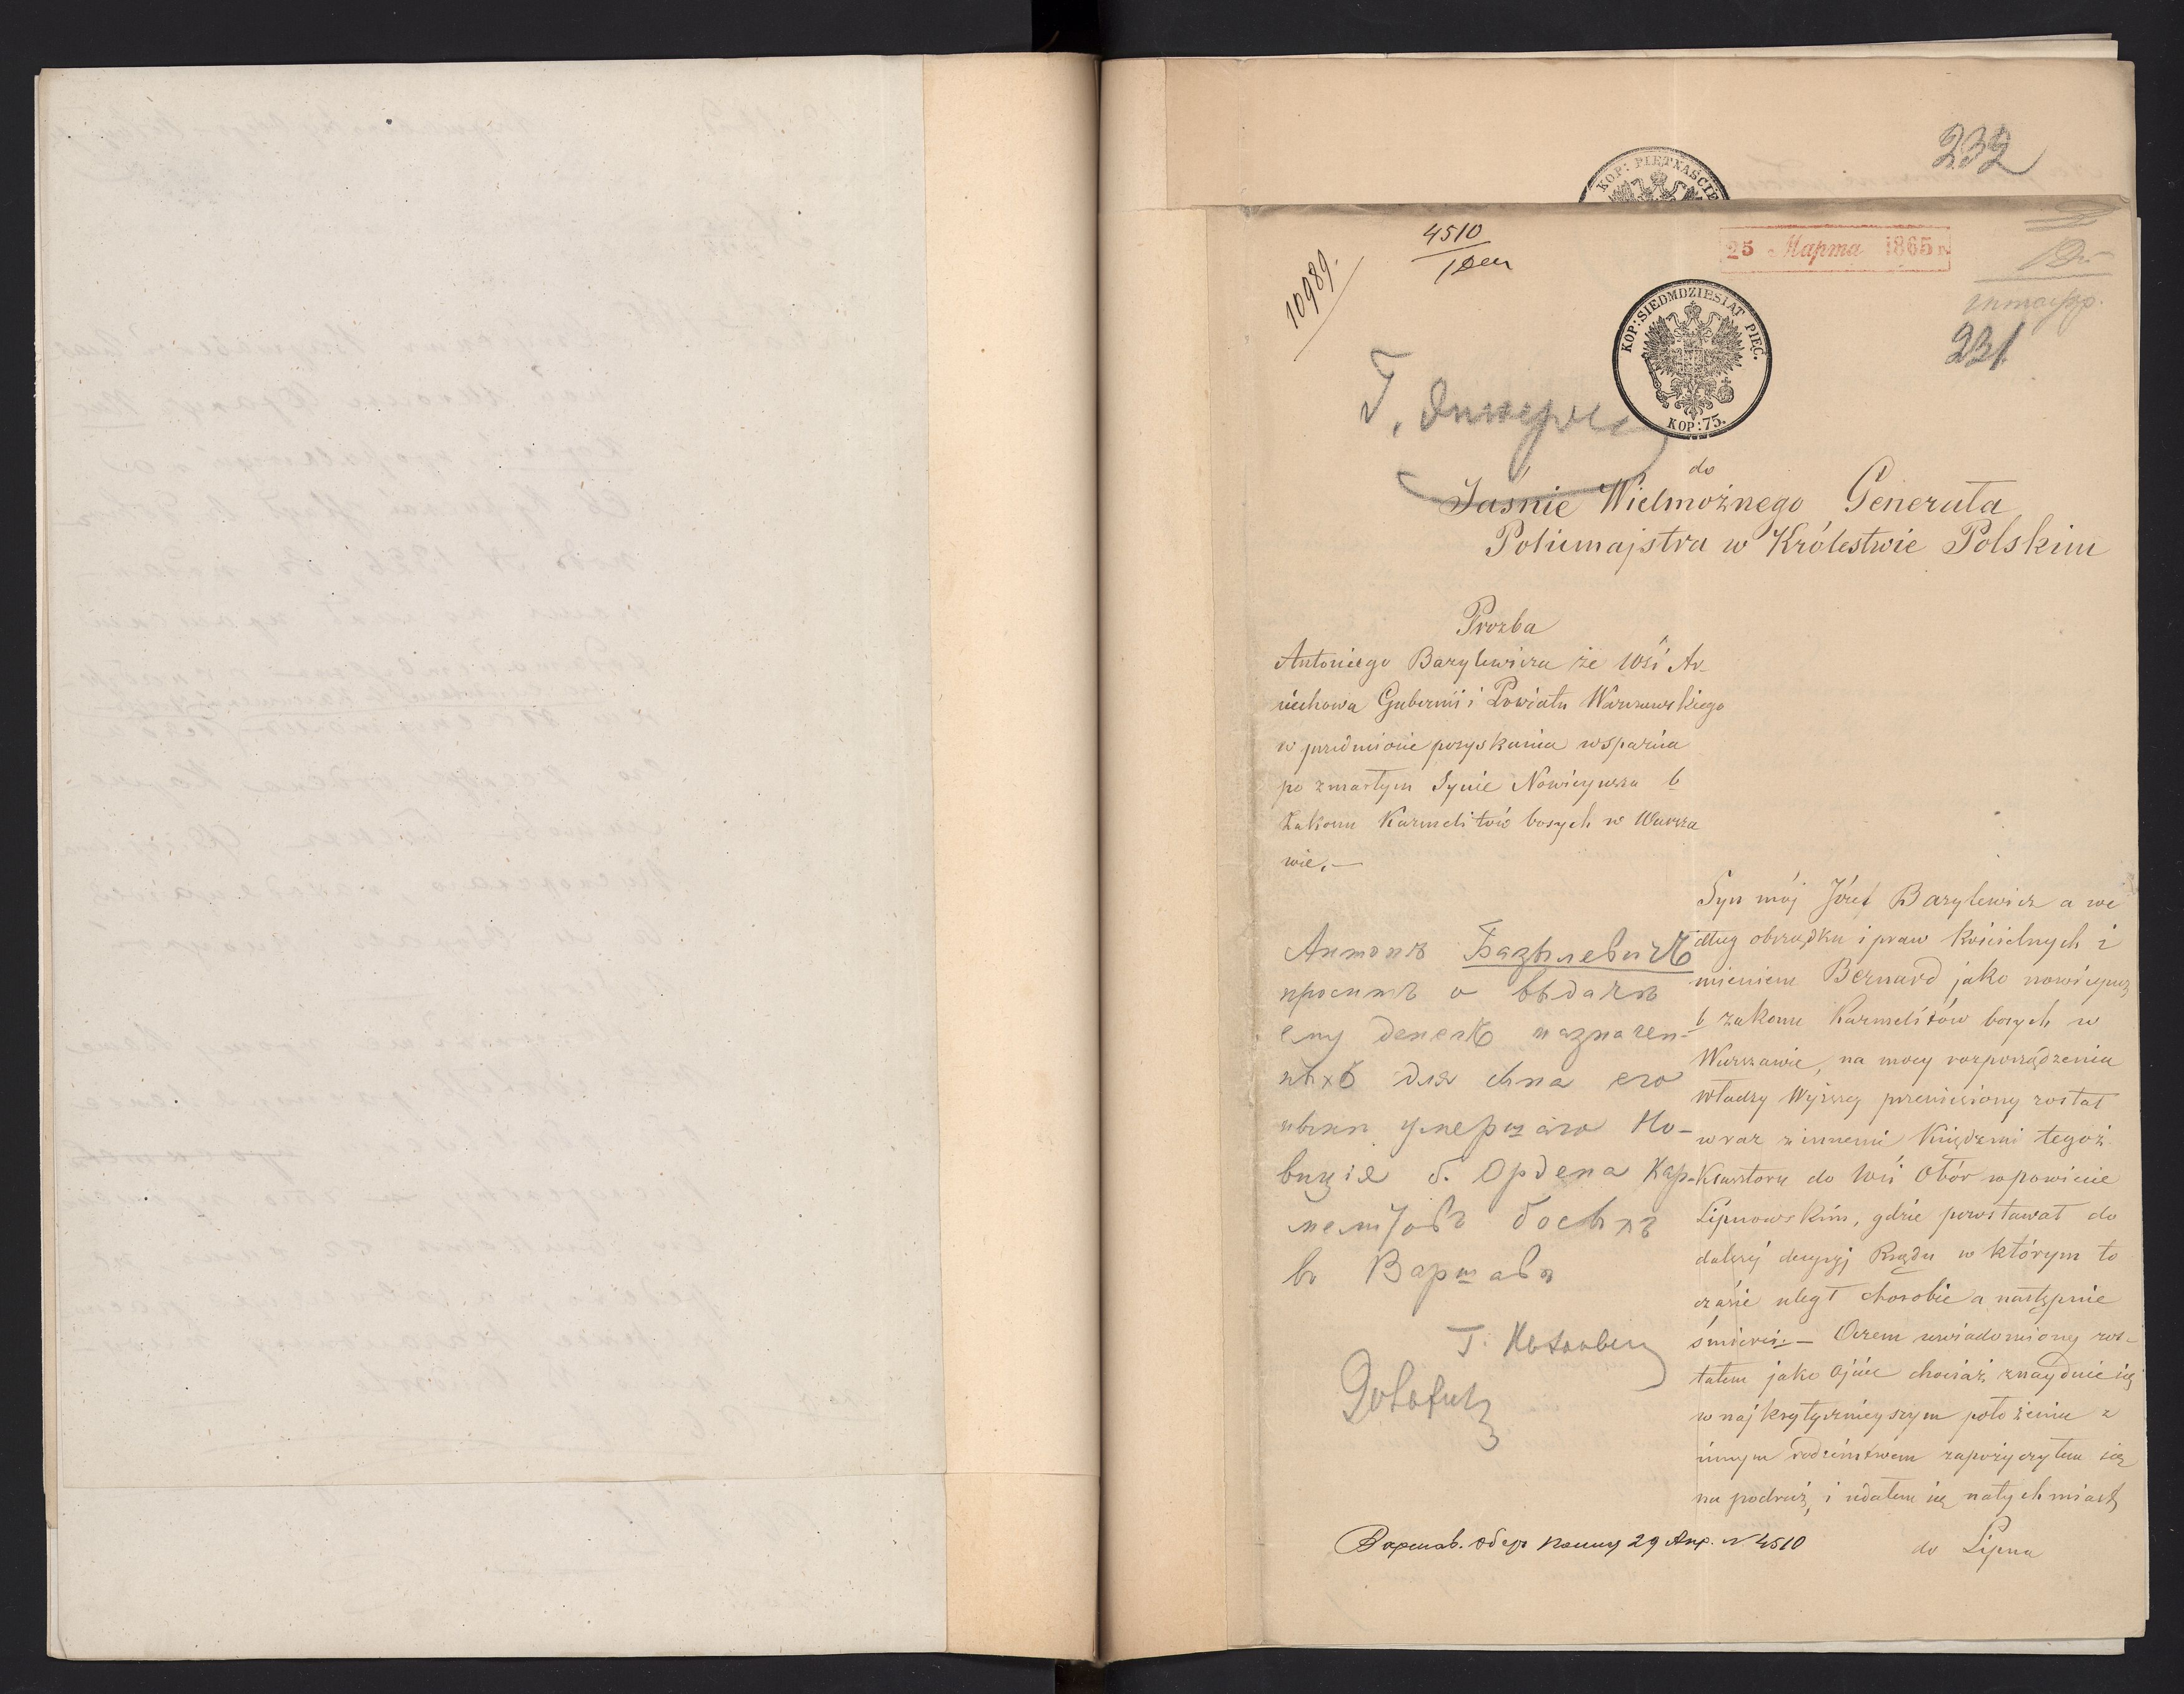 232
KOP: PIĘTNAŚCIE
4510
10989.
25 Марта 1865 г.
KOP: SIEDMDZIESIĄT PIĘĆ.
KOP: 75.
231
do
Jaśnie Wielmożnego Generała
Policmajstra w Królestwie Polskim
Prozba
Antoniego Bazylewicza ze Wsi Ar
ciechowa Gubernii i Powiatu Warszawskiego
w przedmiocie pozyskania wsparcia
po zmarłym Synie Nowicyusza b
Zakonu Karmelitów bosych w Warsza
wie. —
Антонъ Базылевичъ
проситъ о выдачѣ
ему денегъ назначен-
ныхъ для сына его
нынѣ умершаго Но-
виція б. Ордена Кар-
мелитовъ босыхъ
въ Варшавѣ
Syn mój Józef Bazylewicz a we
dług obrządku i praw kościelnych i
mieniem Bernard jako nowicyusz
b zakonu Karmelitów bosych w
Warszawie, na mocy rozporządzenia
władzy Wyższej przeniesiony został
wraz z innemi Księdzmi tegoż
Klasztoru do Wsi Obór w powiecie
Lipnowskim, gdzie pozostawał do
dalszej decyzji Rządu w którym to
czasie uległ chorobie a następnie
śmierci. — O czem uwiadomiony zos-
tałem jako Ojciec chociaż znayduie się
w najkrytyczniejszym położeniu z
innym rodzeństwem zapożyczyłem się
na podróż, i udałem się natychmiast
do Lipna
Варшав. Обер Полиц 29 Апр. N 4510